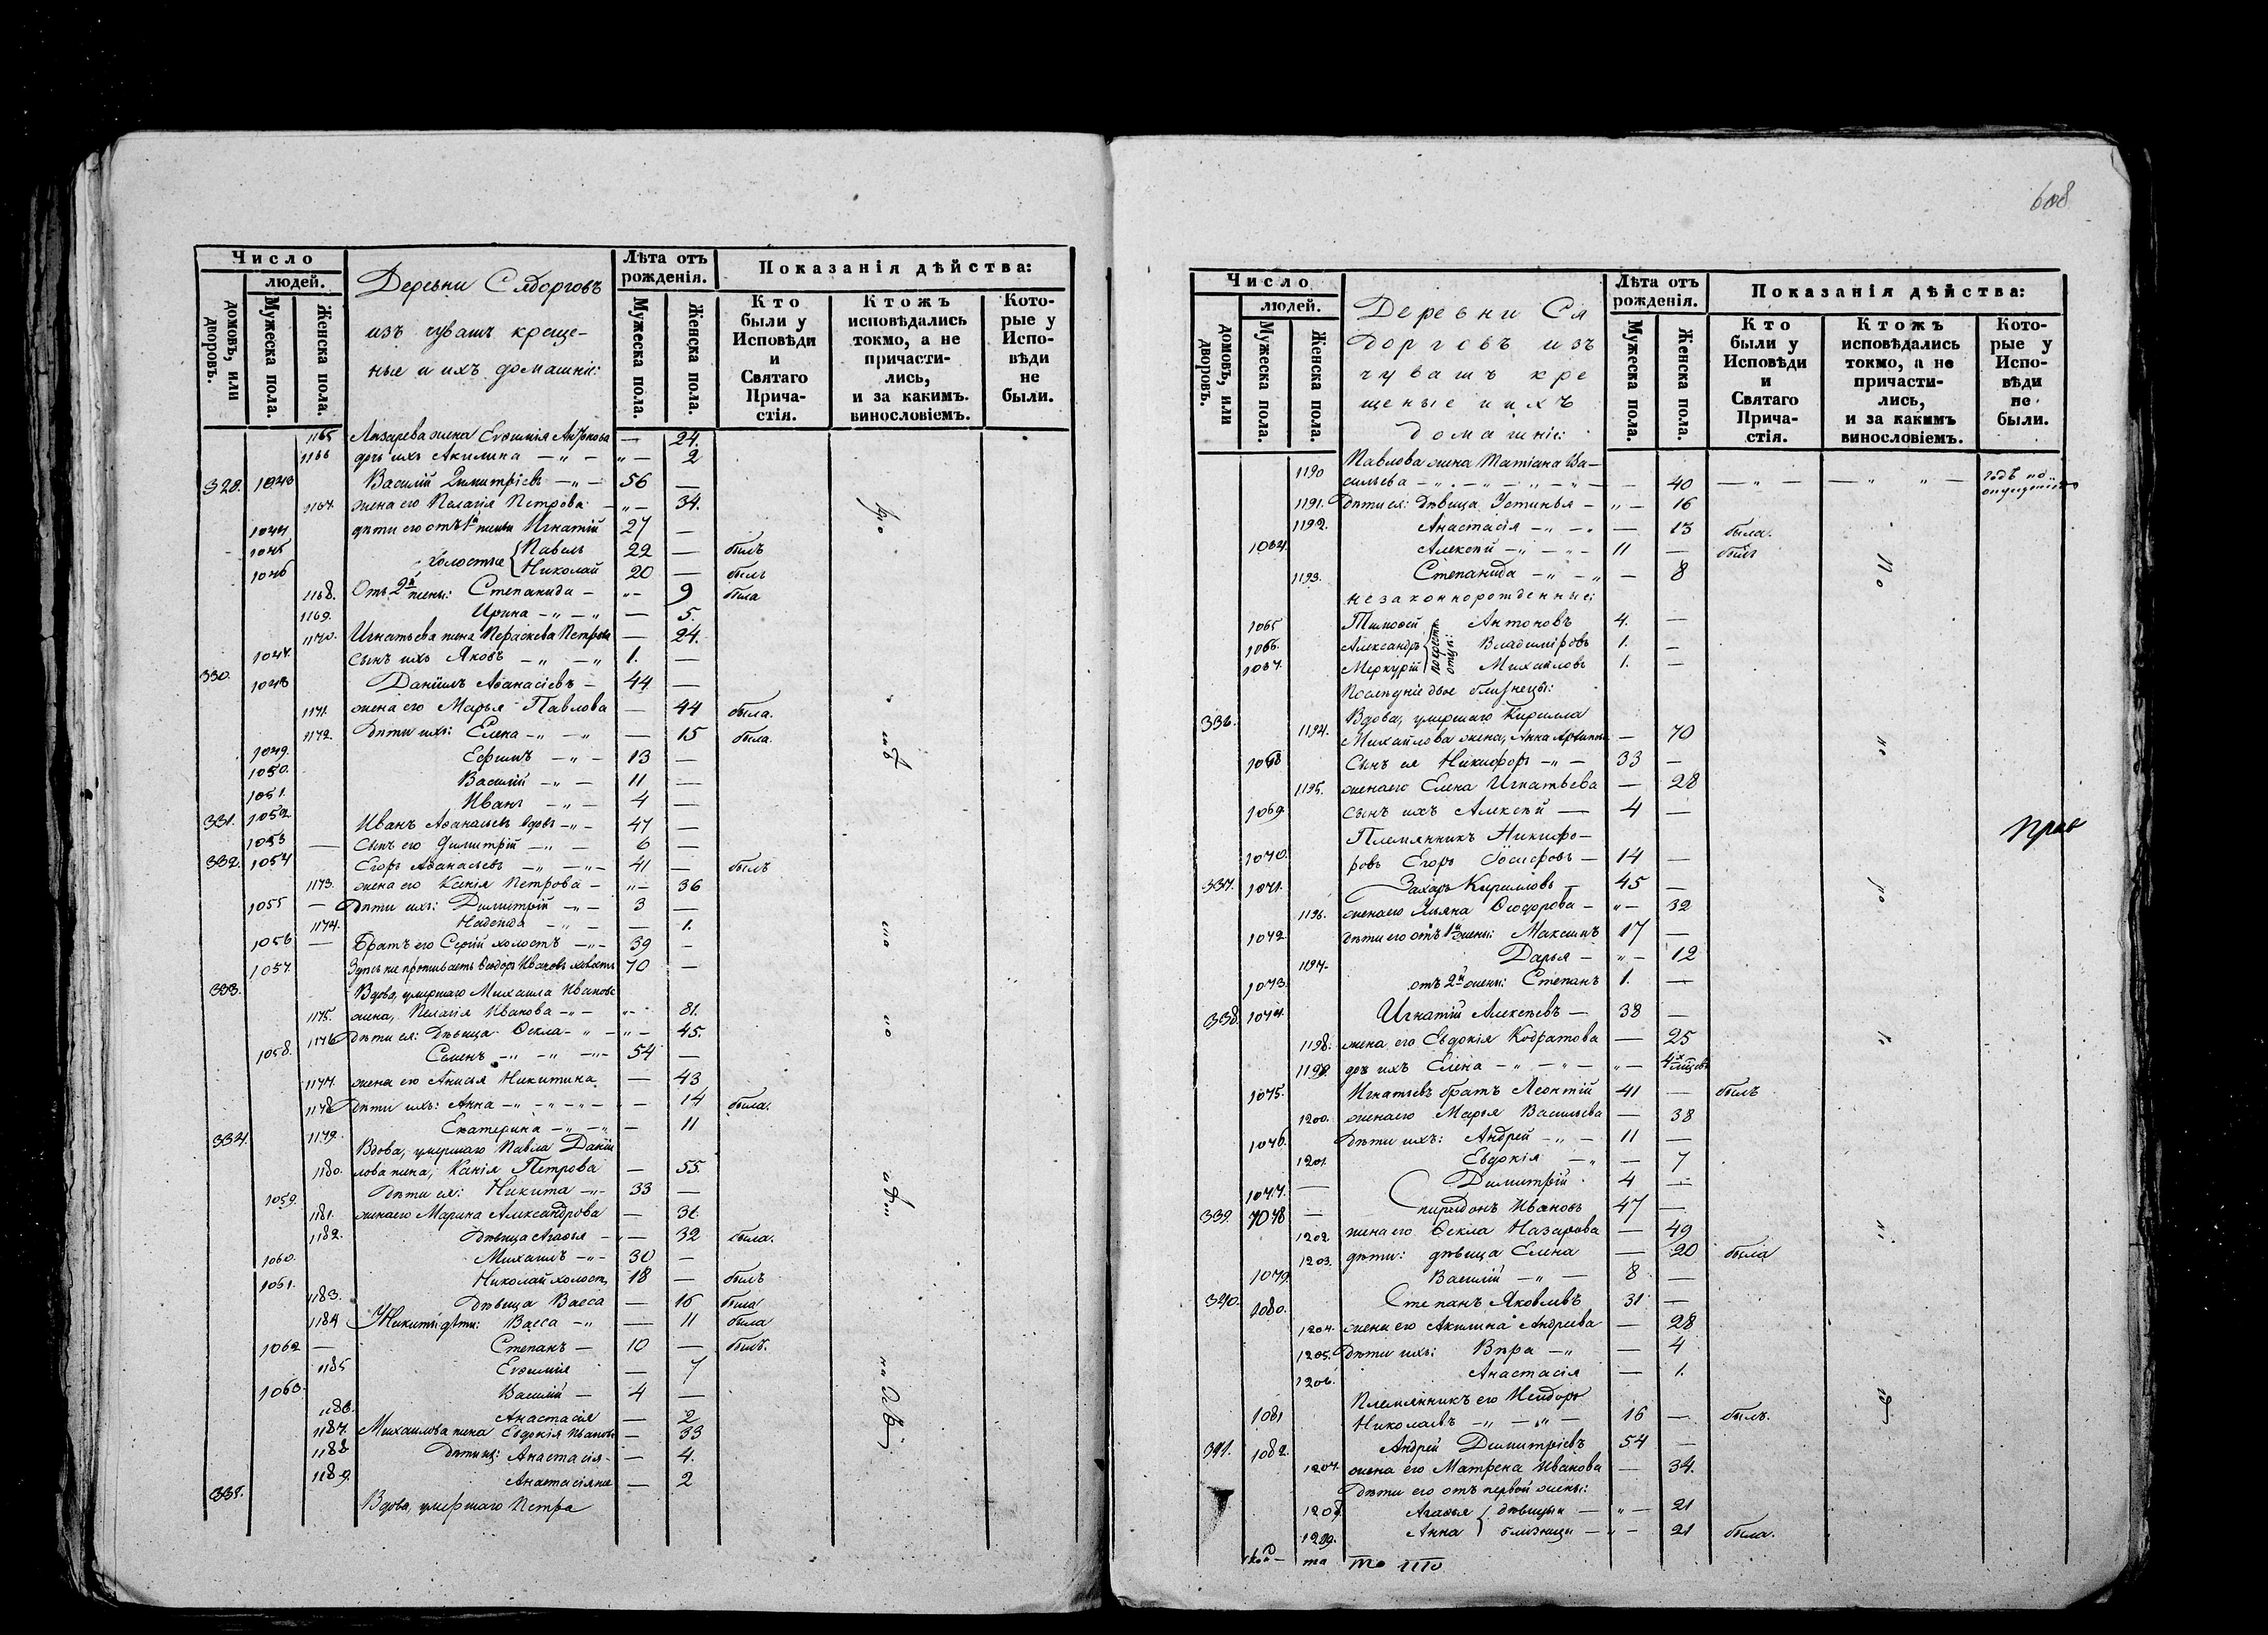 Число
людей.
домовъ, или дворовъ.
Мужеска пола.
Женска пола.
Деревни Сядорговъ
изъ чувашъ креще-
ные и ихъ домашніе:
Лѣта отъ рожденія.
Мужеска пола.
Женска пола.
Показанія дѣйства:
Кто были у Исповѣди и Святаго Прича-стія.
Ктожъ исповѣдались токмо, а не причасти-лись, и за какимъ. винословіемъ.
Кото-рые у Испо-вѣди не были.
1165 Лазарева жена Евѳимія — 24.
1166 дочь ихъ Акилина — „ — „ — 2
328. 1043 Василій Димитріевъ — „ — 56 —
1167. жена его Пелагія Петрова — „ — 34.
1044 дѣти его отъ 1й жены Игнатій 27 —
1045 холостые Павелъ 22 — былъ
1046 Николай 20 — былъ
1168. Отъ 2й жены: Степанида — „ — 9 была
1169. Ирина — „ — „ — 5.
1170. Игнатьева жена Параскева Петрова — 24.
1047. сынъ ихъ Яковъ — „ — „ 1. —
330. 1048 Даніилъ Аѳанасіевъ — 44 —
1171. жена его Марья Павлова — 44 была.
1172. Дѣти ихъ: Елена — „ — „ — 15 была.
1049. Ефимъ — „ — 13 —
1050. Василій — „ — 11 —
1051. Иванъ — „ — 4 —
331. 1052. Иванъ Аѳанасьевъ вдовъ — „ — 47 —
1053 — Сынъ его Димитрій — „ — 6 —
332. 1054 Егоръ Аѳанасьевъ — „ — „ — 41 — былъ
1173. жена его Ксенія Петрова — „ — 36
1055 — Дѣти ихъ: Димитрій — „ — 3 —
1174. Надежда — „ — — 1.
1056 — Братъ его Сергій холостъ — „ — 39 —
1057. Здѣсь же проживаетъ Ѳеодоръ Ивановъ холостъ 70 —
333. Вдова, умершаго Михаила Иванова
1175. жена, Пелагія Иванова — „ — „ — 81.
1176 Дѣти ея: Дѣвица Ѳекла — „ — „ — 45.
1058. Семенъ — „ — „ — „ — 54 —
1177. жена его Анисья Никитина — 43
1178 Дѣти ихъ: Анна — „ — „ — „ — 14 была.
1179. Екатерина — „ — „ — 11
334. Вдова, умершаго Павла Даніи
1180. лова жена, Ксенія Петрова — 55.
1059. Дѣти ея: Никита — „ — 33 —
1181. жена его Марина Александрова — 31.
1182. Дѣвица Агаѳья — — 32 была.
1060. Михаилъ — „ — 30 —
1061. Николай холостъ 18 — былъ
1183. Дѣвица Васса — 16 была
1184 Никиты дѣти: Васса — „ — 11 была
1062 — Степанъ — 10 — былъ.
1185 Евѳимія — 7
1063. Василій — 4 —
1186. Анастасія — 2
1187. Михаилова жена Евдокія Иванова — 33
1188 Дѣти ихъ: Анастасія — — 4.
1189 Анастасія же — 2
335. Вдова, умершаго Петра
608
Число
людей.
домовъ, или дворовъ.
Мужеска пола.
Женска пола.
Деревни Ся
дорговъ изъ
чувашъ кре
щеные и ихъ
домашніе:
Лѣта отъ рожденія.
Мужеска пола.
Женска пола.
Показанія дѣйства:
Кто были у Исповѣди и Святаго Прича-стія.
Ктожъ исповѣдались токмо, а не причасти-лись, и за какимъ винословіемъ.
Кото-рые у Испо-вѣди не были.
1190 Павлова жена Татіана Ва-
сильева — „ — „ — „ — — 40 — „ — — „ „ —
1191. Дѣти ея: Дѣвица Устинья — „ — 16
1192. Анастасія — „ — „ — 13 была.
1064. Алексѣй — „ — „ — 11 — былъ
1193. Степанида — „ — „ — 8
незаконнорожденные:
1065 Тимоѳей Антоновъ 4. —
1066. Александръ по крестн. отцу: Владиміровъ 1. —
1067. Меркурій Михайловъ 1. —
Послѣдніе двое близнецы:
336. Вдова, умершаго Кирилла
1194. Михайлова жена, Анна — 70
1068 Сынъ ея Никифоръ — „ — 33 —
1195. жена его Елена Игнатьева — 28
1069. сынъ ихъ Алексѣй — 4 —
Племянникъ Никифо-
1070. ровъ Егоръ — 14 —
337. 1071. Захаръ Кирилловъ — 45 —
1196. жена его Ѳеодорова — „ — 32
1072. дѣти его отъ 1й жены: Максимъ 17 —
1197. Дарья — „ — 12
1073. отъ 2й жены: Степанъ 1. —
338. 1074. Игнатій Алексѣевъ — 38 —
1198. жена его Евдокія Кодратова — 25
1199. дочь ихъ Елена — „ — „ — „ —
1075. Игнатьевъ братъ Леонтій 41 — былъ
1200. жена его Марья Васильева — 38
1076. Дѣти ихъ: Андрей — „ — 11 —
1201. Евдокія — „ — 7
1077. — Димитрій 4 —
339. 1078 — Спиридонъ Ивановъ 47 —
1202. жена его Ѳекла Назарова — 49
1203. дѣти: дѣвица Елена — 20 была
1079. Василій — „ — 8 —
340. 1080. Степанъ Яковлевъ 31 —
1204. жена его Акилина Андреева — 28
1205. Дѣти ихъ: Вѣра — „ — 4
1206. Анастасія — 1.
Племянникъ его Исидоръ
1081 Николаевъ — „ — „ — 16 — былъ.
341. 1082. Андрей Димитріевъ 54 —
1207. жена его Матрена Иванова — 34.
Дѣти его отъ первой жены:
1208. Агаѳья дѣвицы и — „ — 21
1209. Анна близнецы — „ — 21 была.